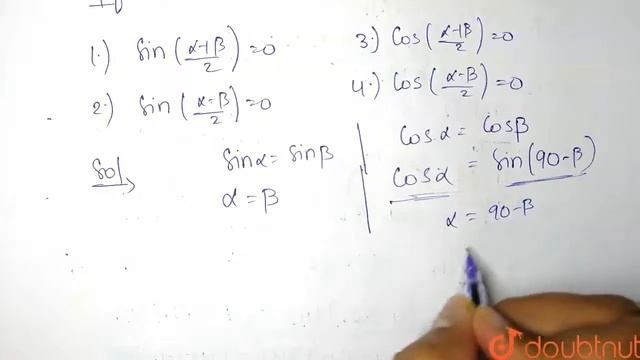 1.) Sin(α+β/2)=0
2.) Sin(α-β/2)=0
3.) Cos(α+β/2)=0
4.) Cos(α-β/2)=0
Sol
Sinα = Sinβ
α = β
Cosα = Cosβ
Cosα = Sin(90-β)
α = 90-β
doubtnut